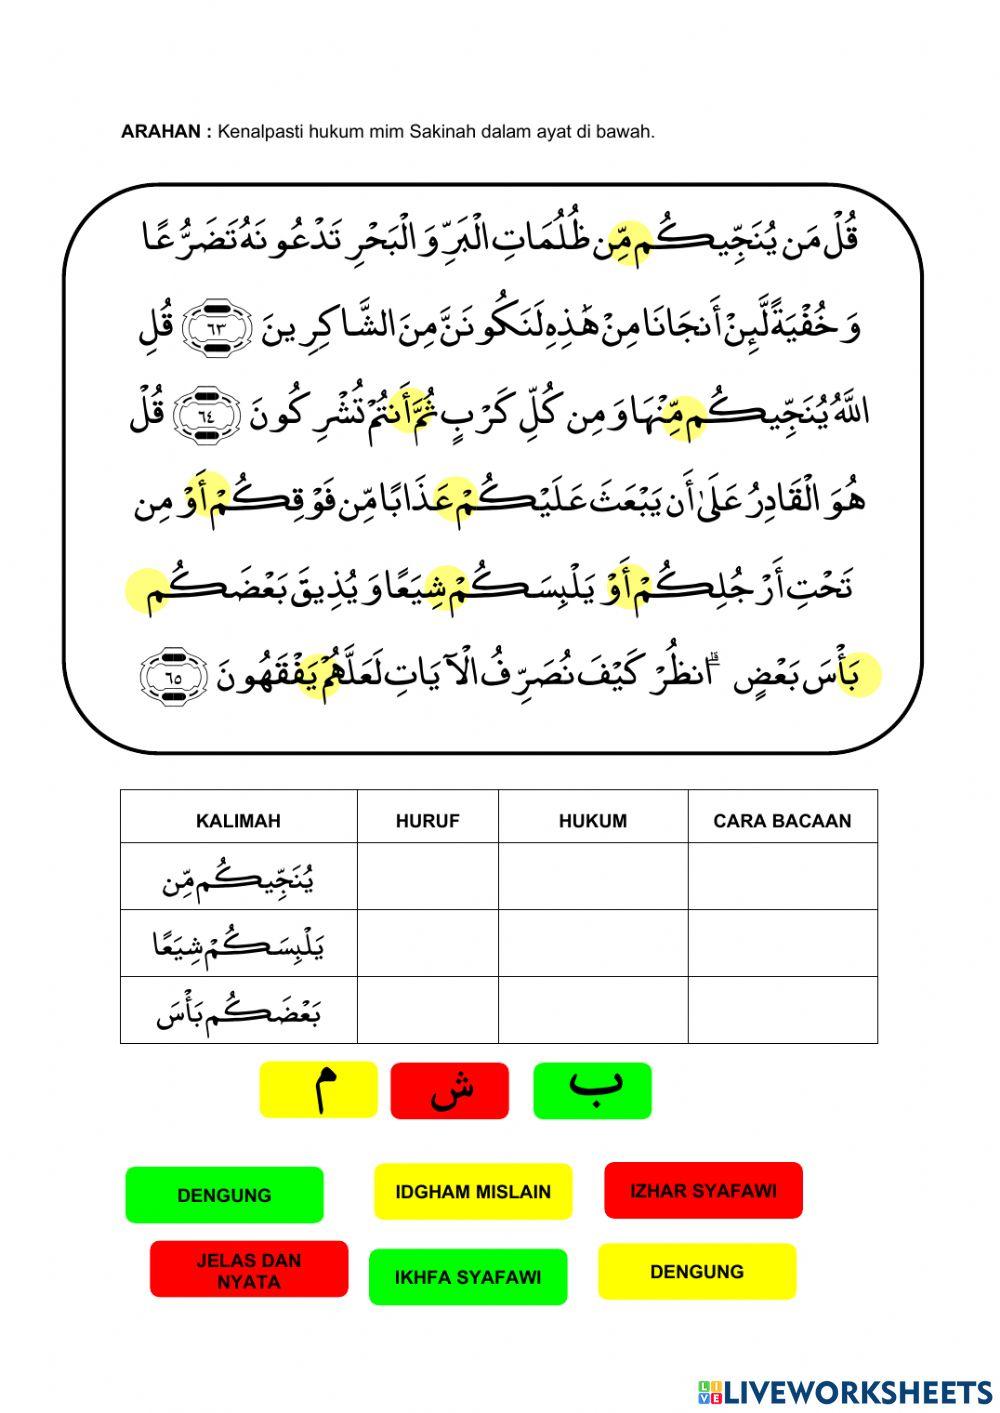 ARAHAN : Kenalpasti hukum mim Sakinah dalam ayat di bawah.
قُلْ مَن يُنَجِّيكُم مِّن ظُلُمَاتِ الْبَرِّ وَالْبَحْرِ تَدْعُونَهُ تَضَرُّعًا
وَخُفْيَةً لَّئِنْ أَنجَانَا مِنْ هَٰذِهِ لَنَكُونَنَّ مِنَ الشَّاكِرِينَ ٦٣ قُلِ
اللَّهُ يُنَجِّيكُم مِّنْهَا وَمِن كُلِّ كَرْبٍ ثُمَّ أَنتُمْ تُشْرِكُونَ ٦٤ قُلْ
هُوَ الْقَادِرُ عَلَىٰ أَن يَبْعَثَ عَلَيْكُمْ عَذَابًا مِّن فَوْقِكُمْ أَوْ مِن
تَحْتِ أَرْجُلِكُمْ أَوْ يَلْبِسَكُمْ شِيَعًا وَيُذِيقَ بَعْضَكُم
بَأْسَ بَعْضٍ ۗ انظُرْ كَيْفَ نُصَرِّفُ الْآيَاتِ لَعَلَّهُمْ يَفْقَهُونَ ٦٥
KALIMAH HURUF HUKUM CARA BACAAN
يُنَجِّيكُم مِّن
يَلْبِسَكُمْ شِيَعًا
بَعْضَكُم بَأْسَ
م ش ب
DENGUNG IDGHAM MISLAIN IZHAR SYAFAWI
JELAS DAN
NYATA
IKHFA SYAFAWI DENGUNG
LIVEWORKSHEETS